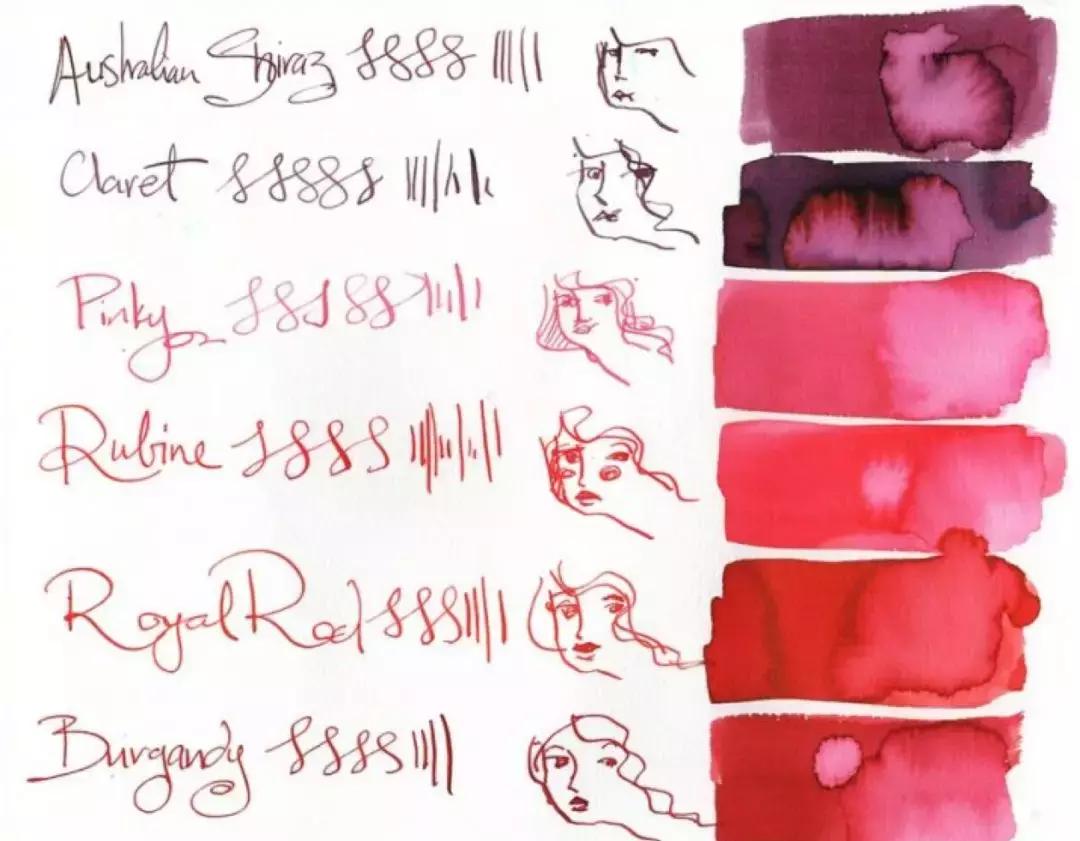 Australian Shiraz
Claret
Pinky
Rubine
Royal Red
Burgandy